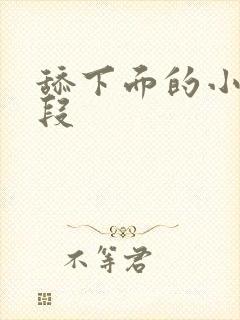 舔下面的小
段
不等君